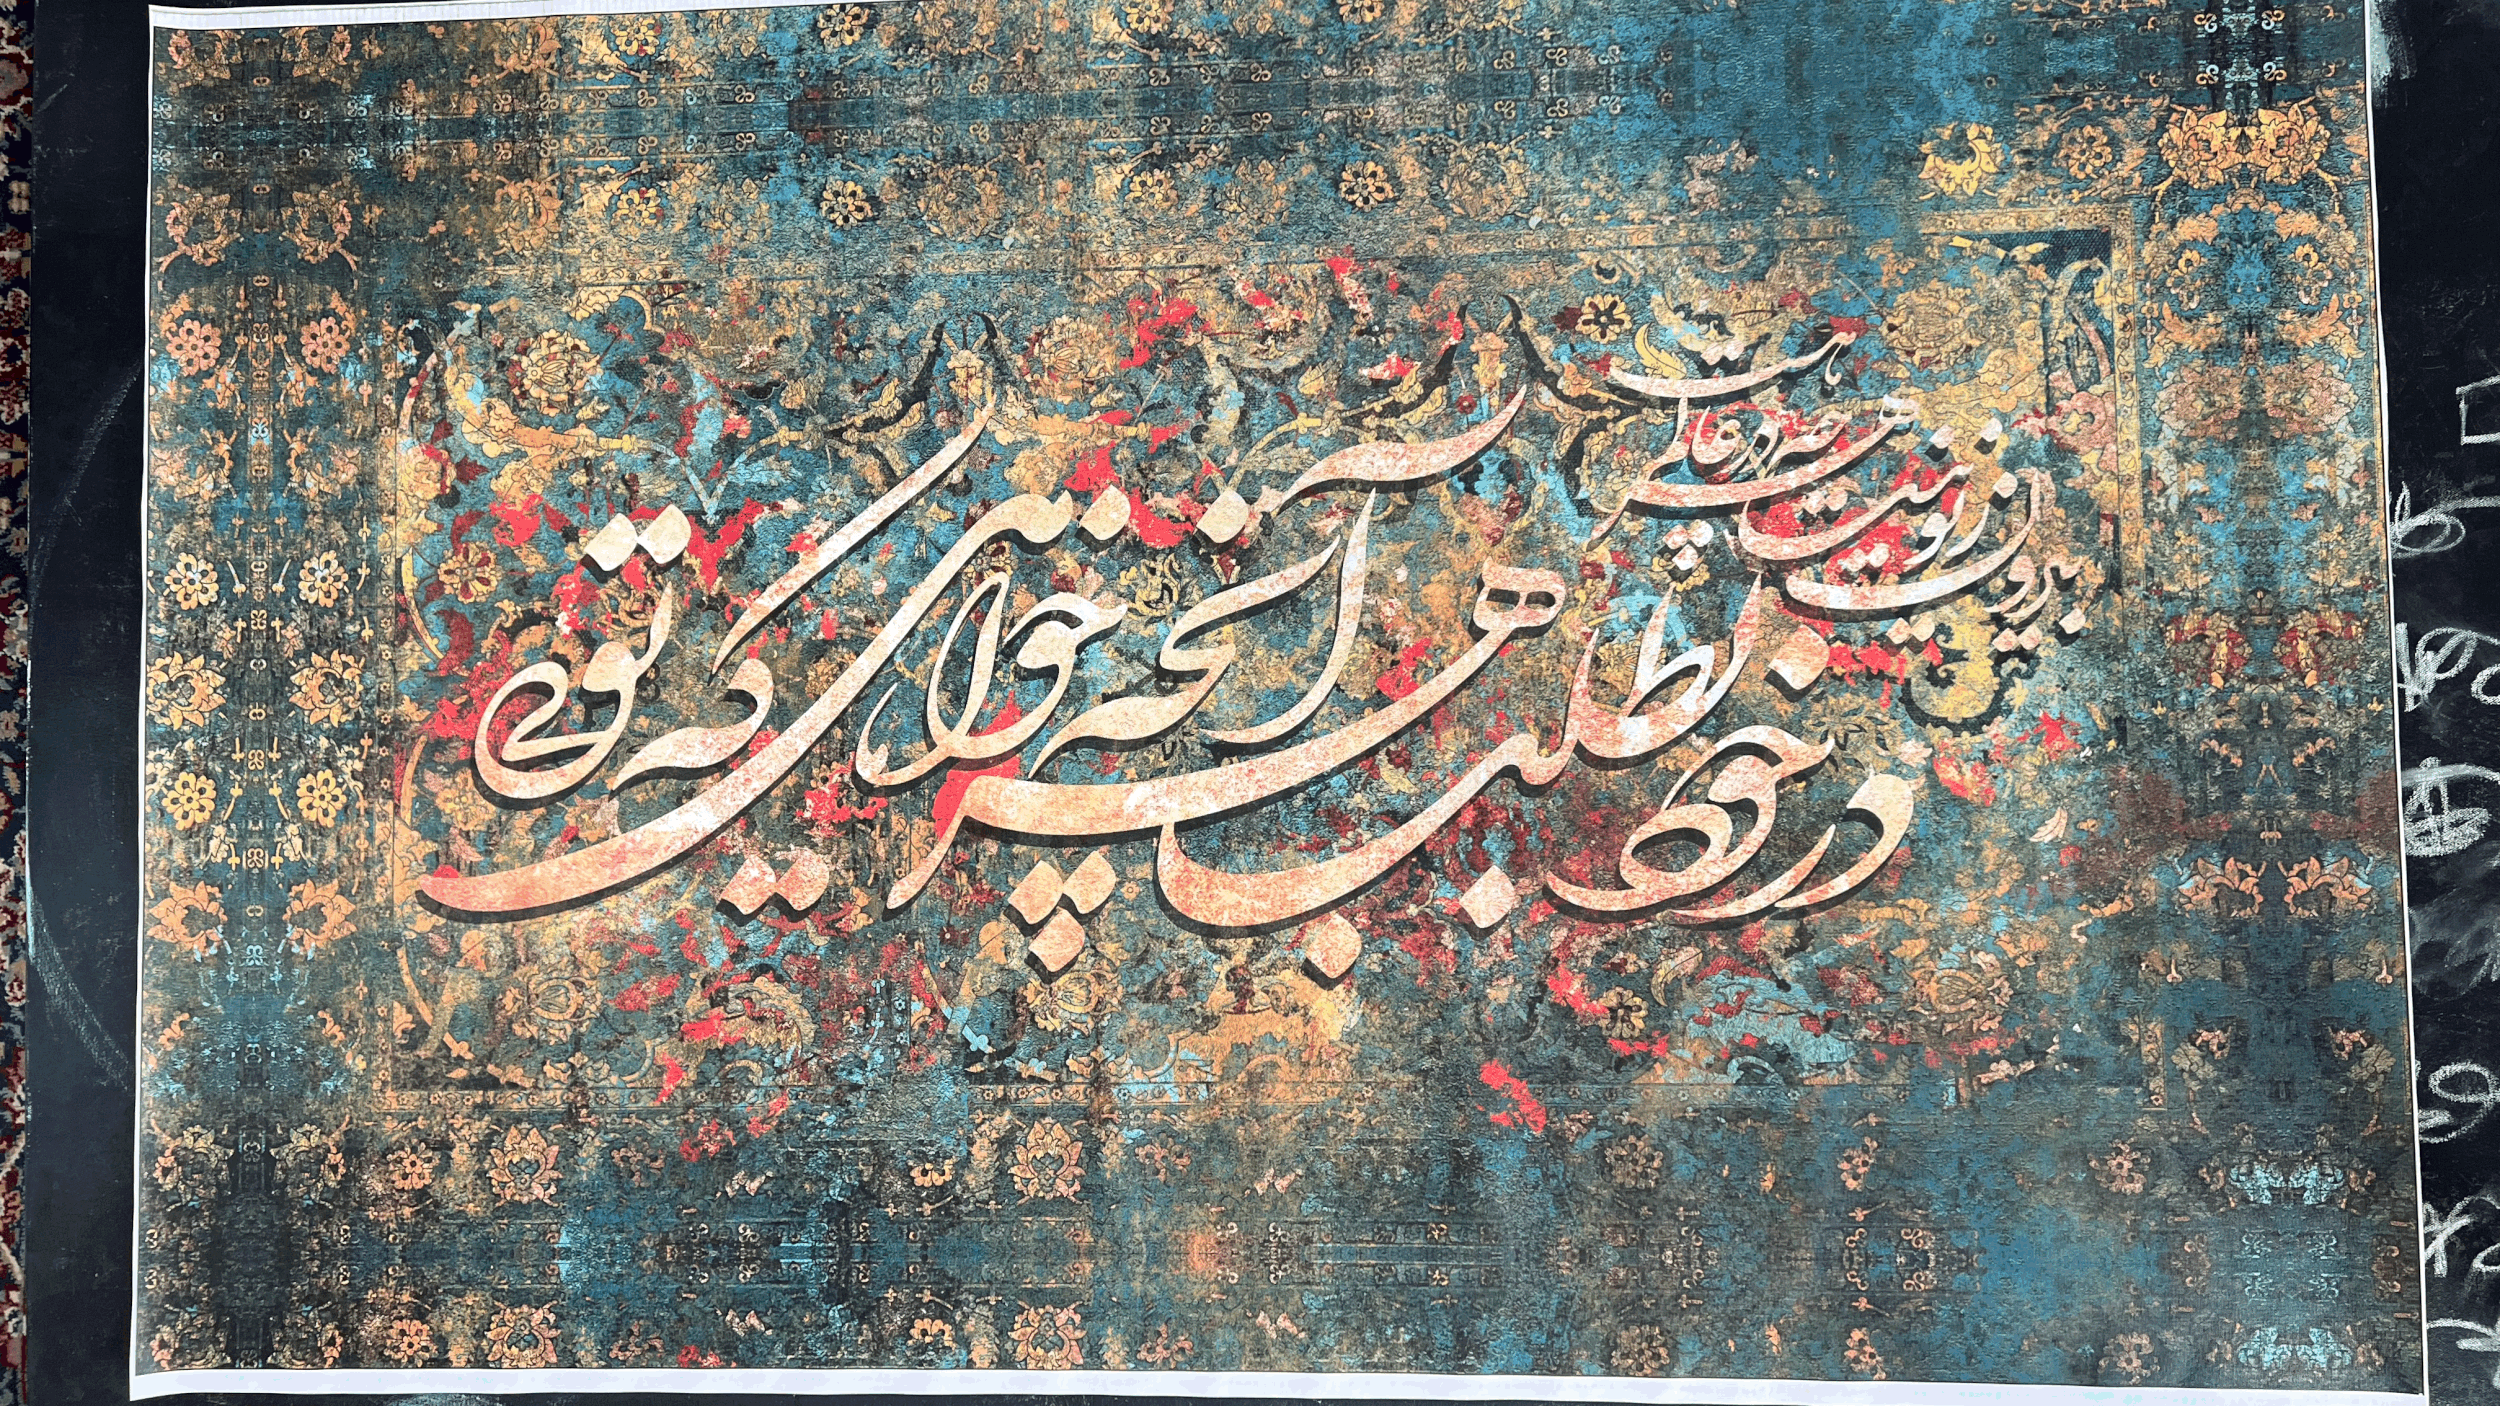 بیرون ز تو نیست هر چه در عالم هست
در خود بطلب هر آنچه خواهی که تویی